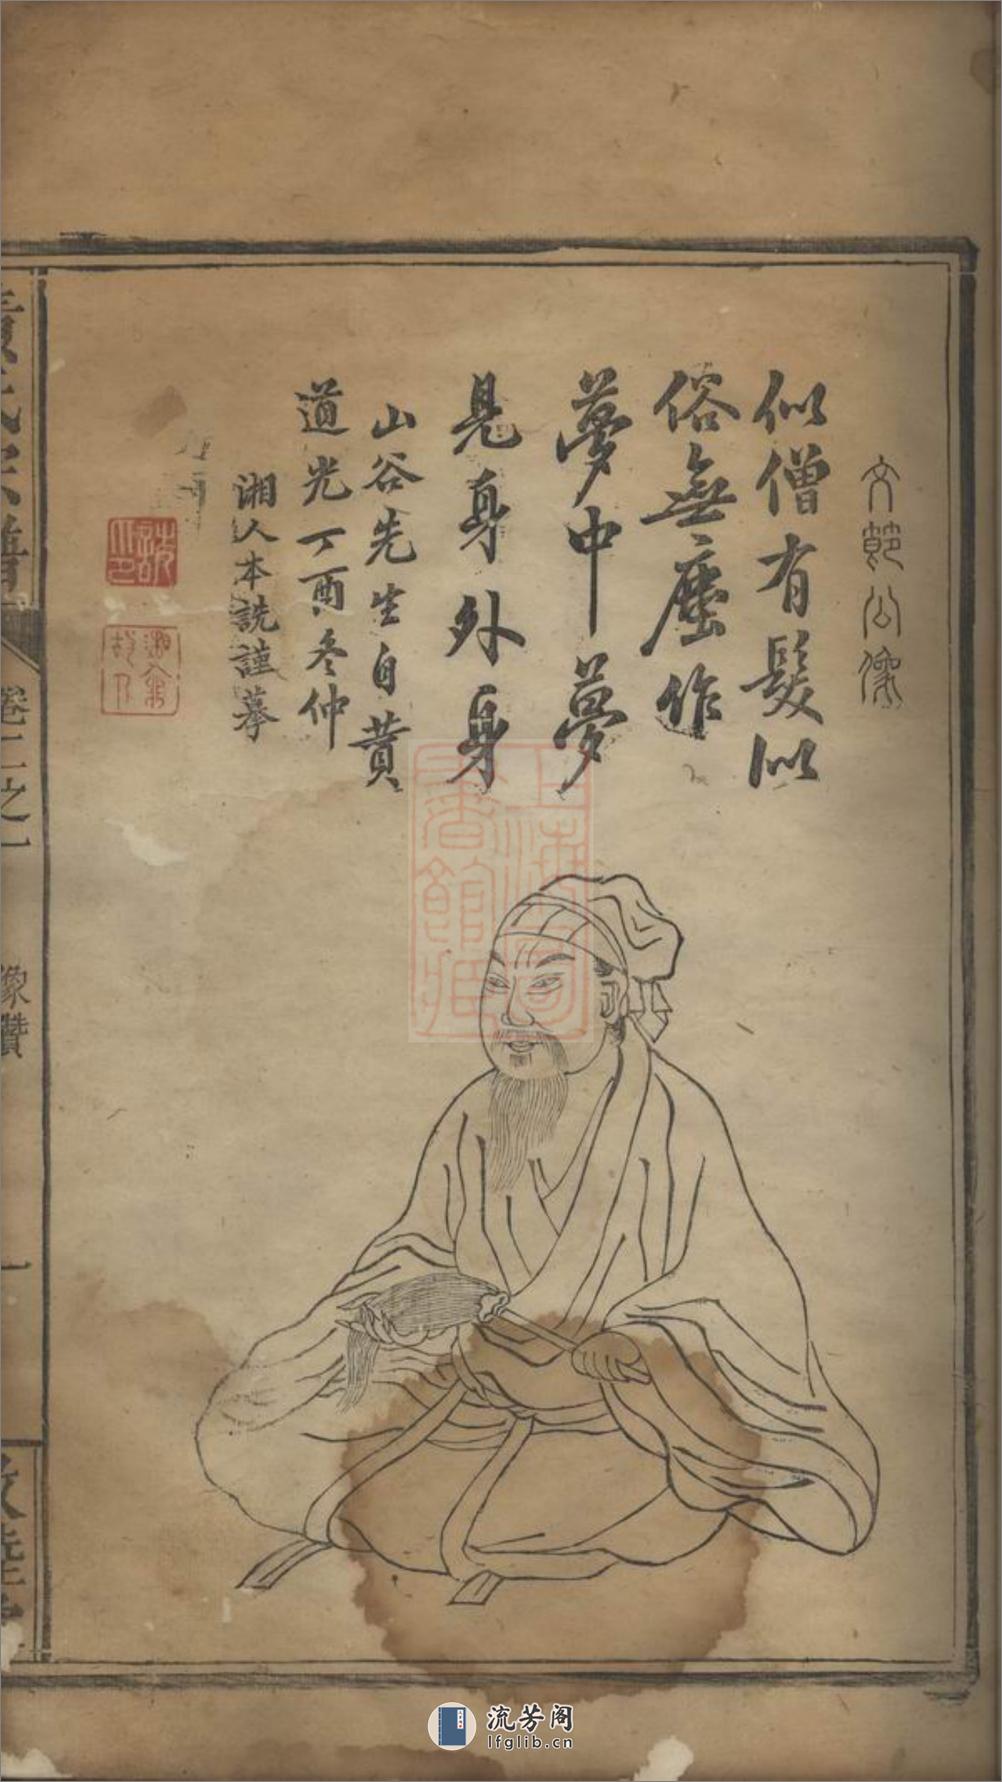 文節公像
似僧有髮似
俗無塵作
夢中夢
見身外身
山谷先生自贊
道光丁酉冬仲
湘人本詵謹摹
卷二之一
像贊
一
上海圖書館藏
流芳阁
lfglib.cn